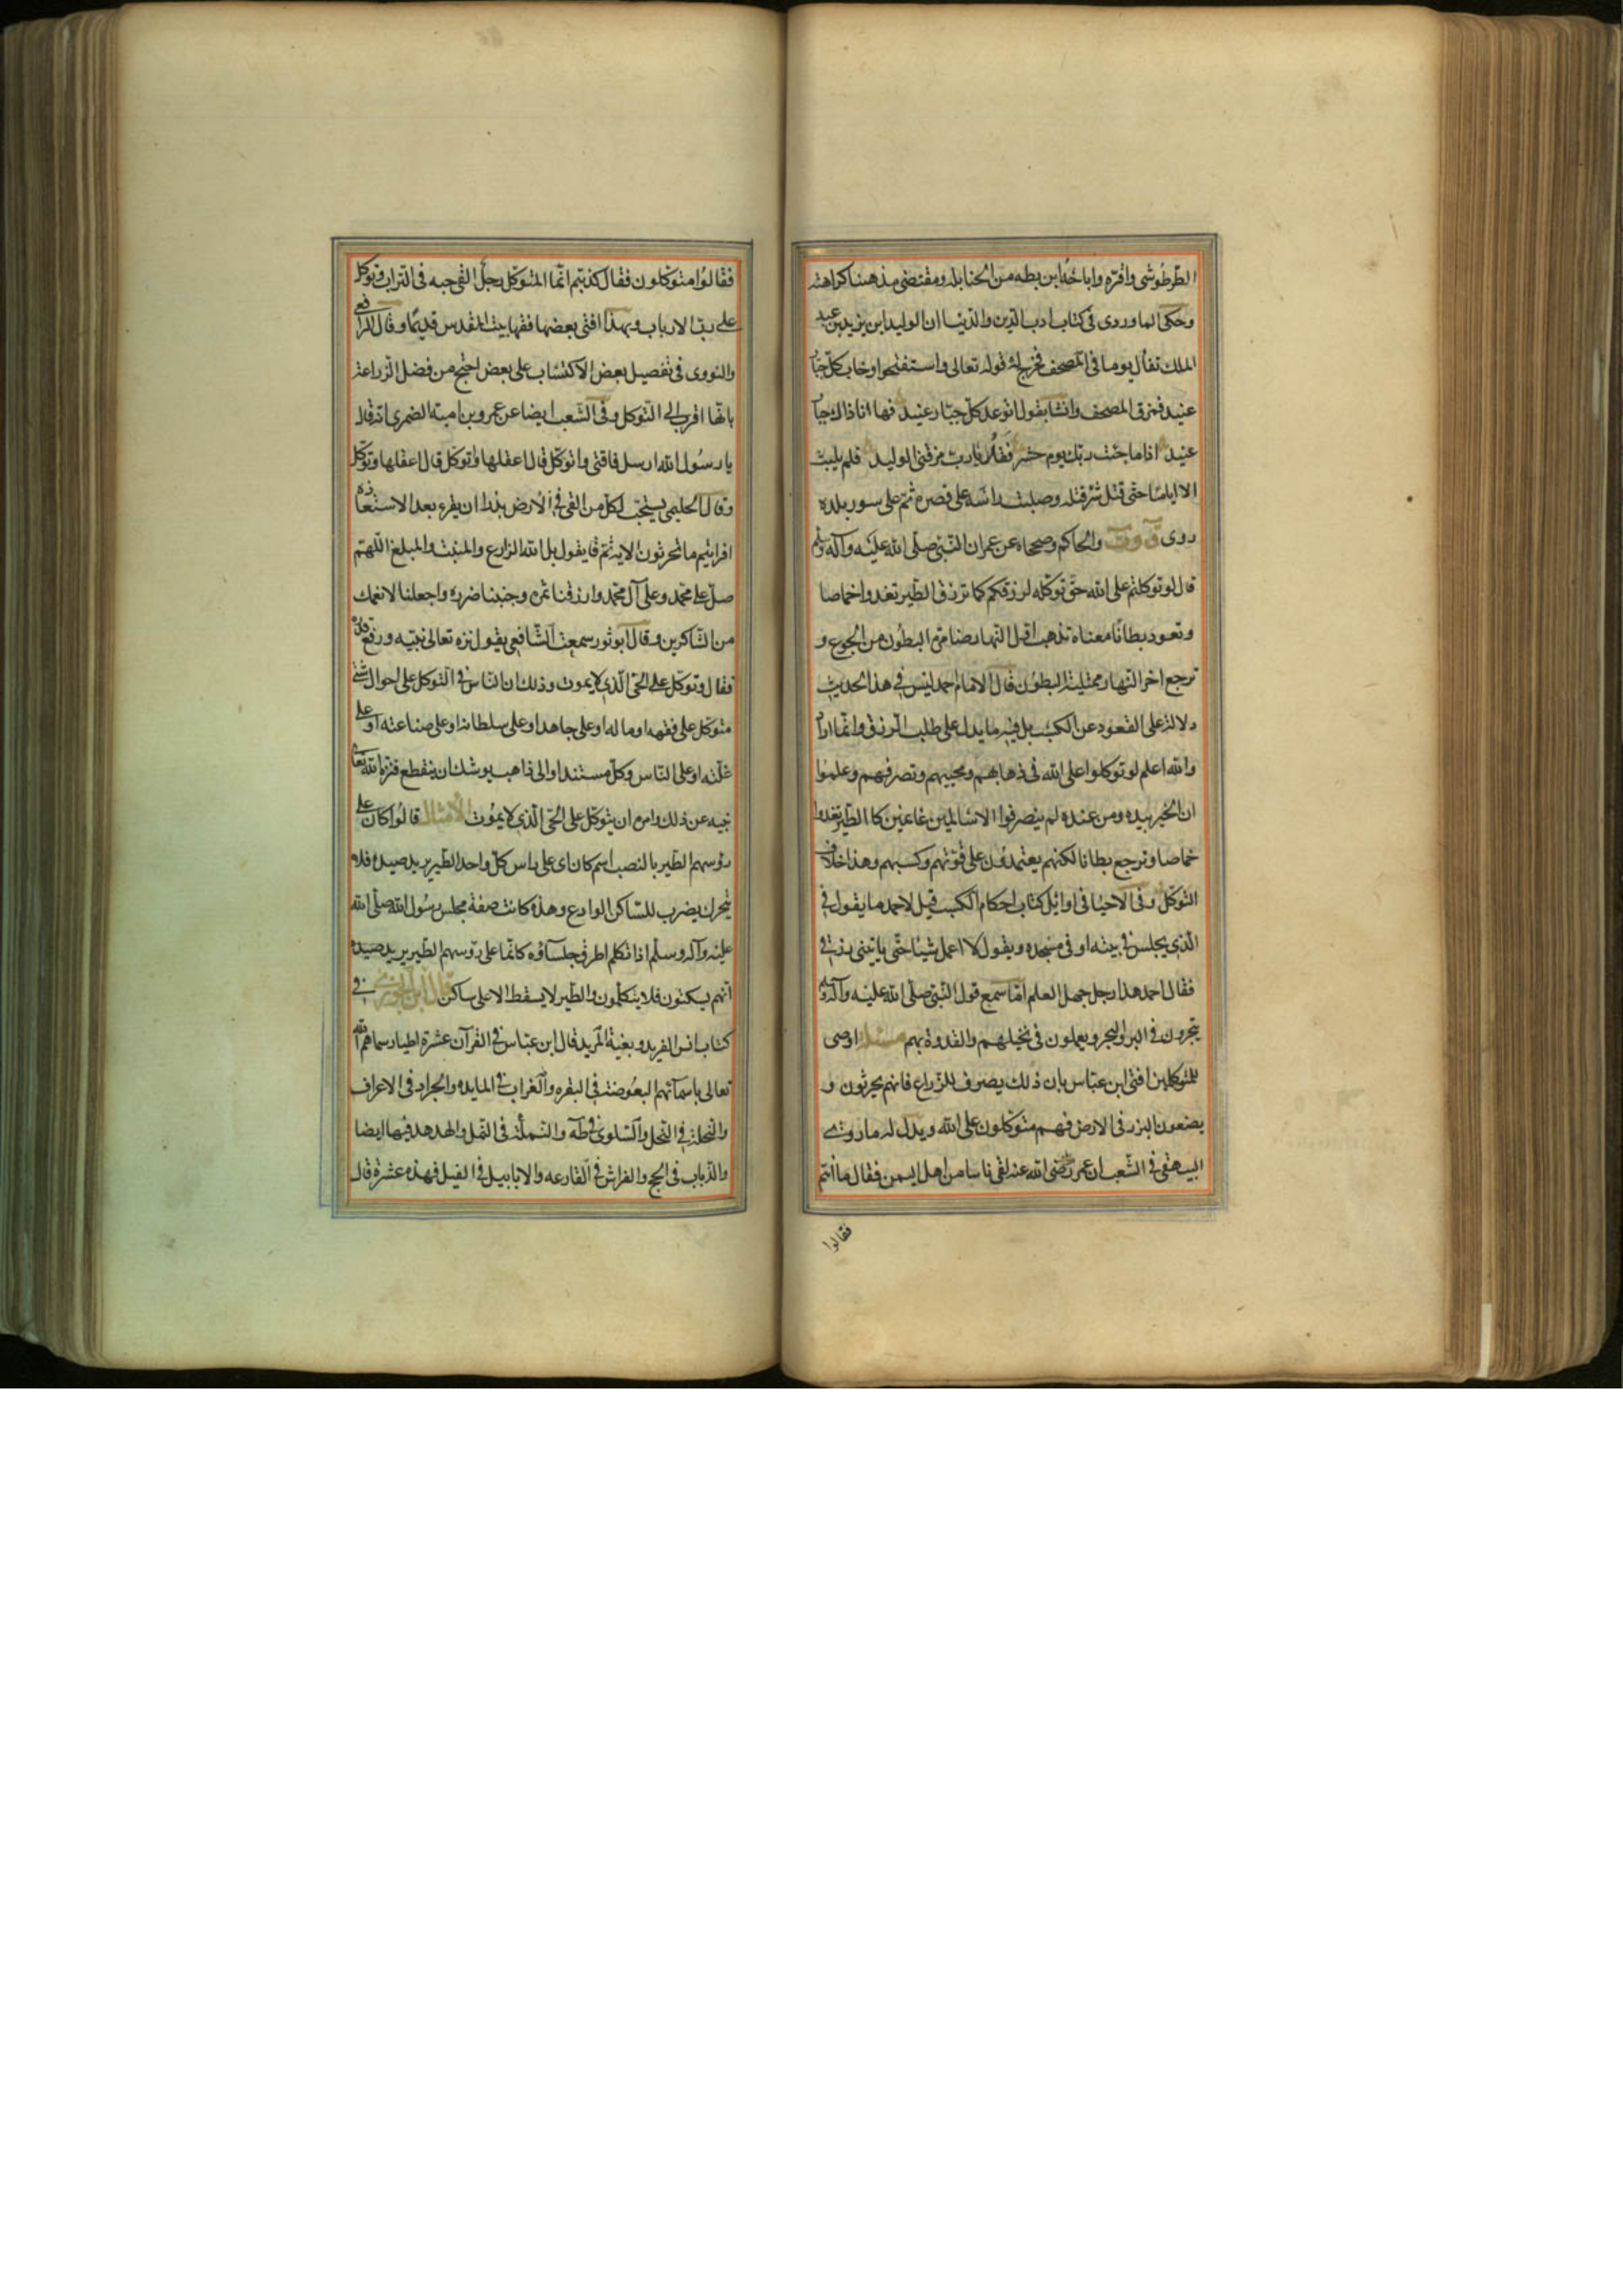 الطرطوشي واقره واباحه ابن بطه من الحنابله ومقتضى مذهبنا كراهته
وحكى الماوردى فى كتاب ادب الدين والدنيا ان الوليد ابن يزيد بن عبد
الملك تفأل يوما فى المصحف فخرج له قوله تعالى واستفتحوا وخاب كل جبار
عنيد فمزق المصحف وانشا يقول اتوعد كل جبار عنيد فها انا ذاك جبار
عنيد اذا ما جئت ربك يوم حشر فقل يا رب مزقنى الوليد فلم يلبث
الا اياما حتى قتل شر قتله وصلبت راسه على قصره ثم على سور بلده
روى ت و ق والحاكم وصححاه عن عمران النبى صلى الله عليه وآله وسلم
قال لو توكلتم على الله حق توكله لرزقكم كما ترزق الطير تغدوا خماصا
وتعود بطانا معناه تذهب اول النهار ضامرة البطون من الجوع و
ترجع اخر النهار ممتلية البطون قال الامام احمد ليس فى هذا الحديث
دلالة على القعود عن الكسب بل فيه ما يدل على طلب الرزق وانما اراد
والله اعلم لو توكلوا على الله فى ذهابهم ومجيبهم وتصرفهم وعلموا
ان الخير بيده ومن عنده لم ينصرفوا الا سالمين غانمين كا الطير تغدوا
خماصا وترجع بطانا لكنهم يعتمدون على قوتهم وكسبهم وهذا خلاف
التوكل وفى الاحيا فى اوائل كتاب احكام الكسب قيل لاحمد ما يقول فى
الذى يجلس فى بيته او فى مسجده ويقول لا اعمل شيئا حتى ياتينى رزقى
فقال احمد هذا رجل جهل العلم اما سمع قول النبى صلى الله عليه وآله وسلم
يتجرون فى البر والبحر ويعملون فى نخيلهم والقدوة بهم مسئلة اوصى
للمتوكلين افتى ابن عباس بان ذلك يصرف للزراع فانهم يحرثون و
يضعون البزر فى الارض فهم متوكلون على الله ويدل له ما روى
البيهقى فى الشعب ان عمر رضى الله عنه لقى ناسا من اهل اليمن فقال ما انتم
فقالوا
فقالوا متوكلون فقال كذبتم انما المتوكل رجل القى حبه فى التراب وتوكل
على رب الارباب وبهذا افتى بعضها فقها بيت المقدس قديما وقال الرافعى
والنووى فى تفصيل بعض الاكتساب على بعض احتج من فضل الزراعة
بانها اقرب الى التوكل وفى الشعب ايضا عن عمرو بن امية الضمرى انه قال
يا رسول الله ارسل ناقتى واتوكل قال اعقلها واتوكل قال اعقلها وتوكل
وقال الحليمى يستحب لكل من القى فى الارض بذرا ان يقرء بعد الاستعاذه
افرايتم ما تحرثون الاية ثم يقول بل الله الزارع والمنبت والمبلغ اللهم
صل على محمد وعلى آل محمد وارزقنا ثمره وجنبنا ضرره واجعلنا لانعمك
من الشاكرين وقال ابو ثور سمعت الشافعى يقول نزه تعالى نبيه ورفع قدره
فقال وتوكل على الحى الذى لا يموت وذلك ان الناس فى التوكل على احوال شتى
متوكل على فقهه او ماله او على جاهه او على سلطانه او على صناعته او على
غلته او على الناس وكل مستند او الى ذاهب يوشك ان ينقطع فنزه الله تعالى
نبيه عن ذلك وامره ان يتوكل على الحى الذى لا يموت الامثال قالوا كان على
رؤسهم الطير بالنصب اسم كان اى على راس كل واحد الطير يريد صيده فلا
يتحرك يضرب للساكن الوادع وهذه كانت صفة مجلس رسول الله صلى الله
عليه وآله وسلم اذا تكلم اطرق جلساؤه كانما على رؤسهم الطير يريد صيده
انهم يسكنون فلا يتكلمون والطير لا يسقط الا على ساكن قال ابن الجوزى فى
كتاب انس الفريد وبغية المريد قال ابن عباس فى القرآن عشرة اطيار سماهم الله
تعالى باسمآئهم البعوضة فى البقره والغراب فى المايده والجراد فى الاعراف
والنحلة فى النحل والسلوى فى طه والنملة فى النمل والهدهد فيها ايضا
والذباب فى الحج والفراش فى القارعه والابابيل فى الفيل فهذه عشرة قال